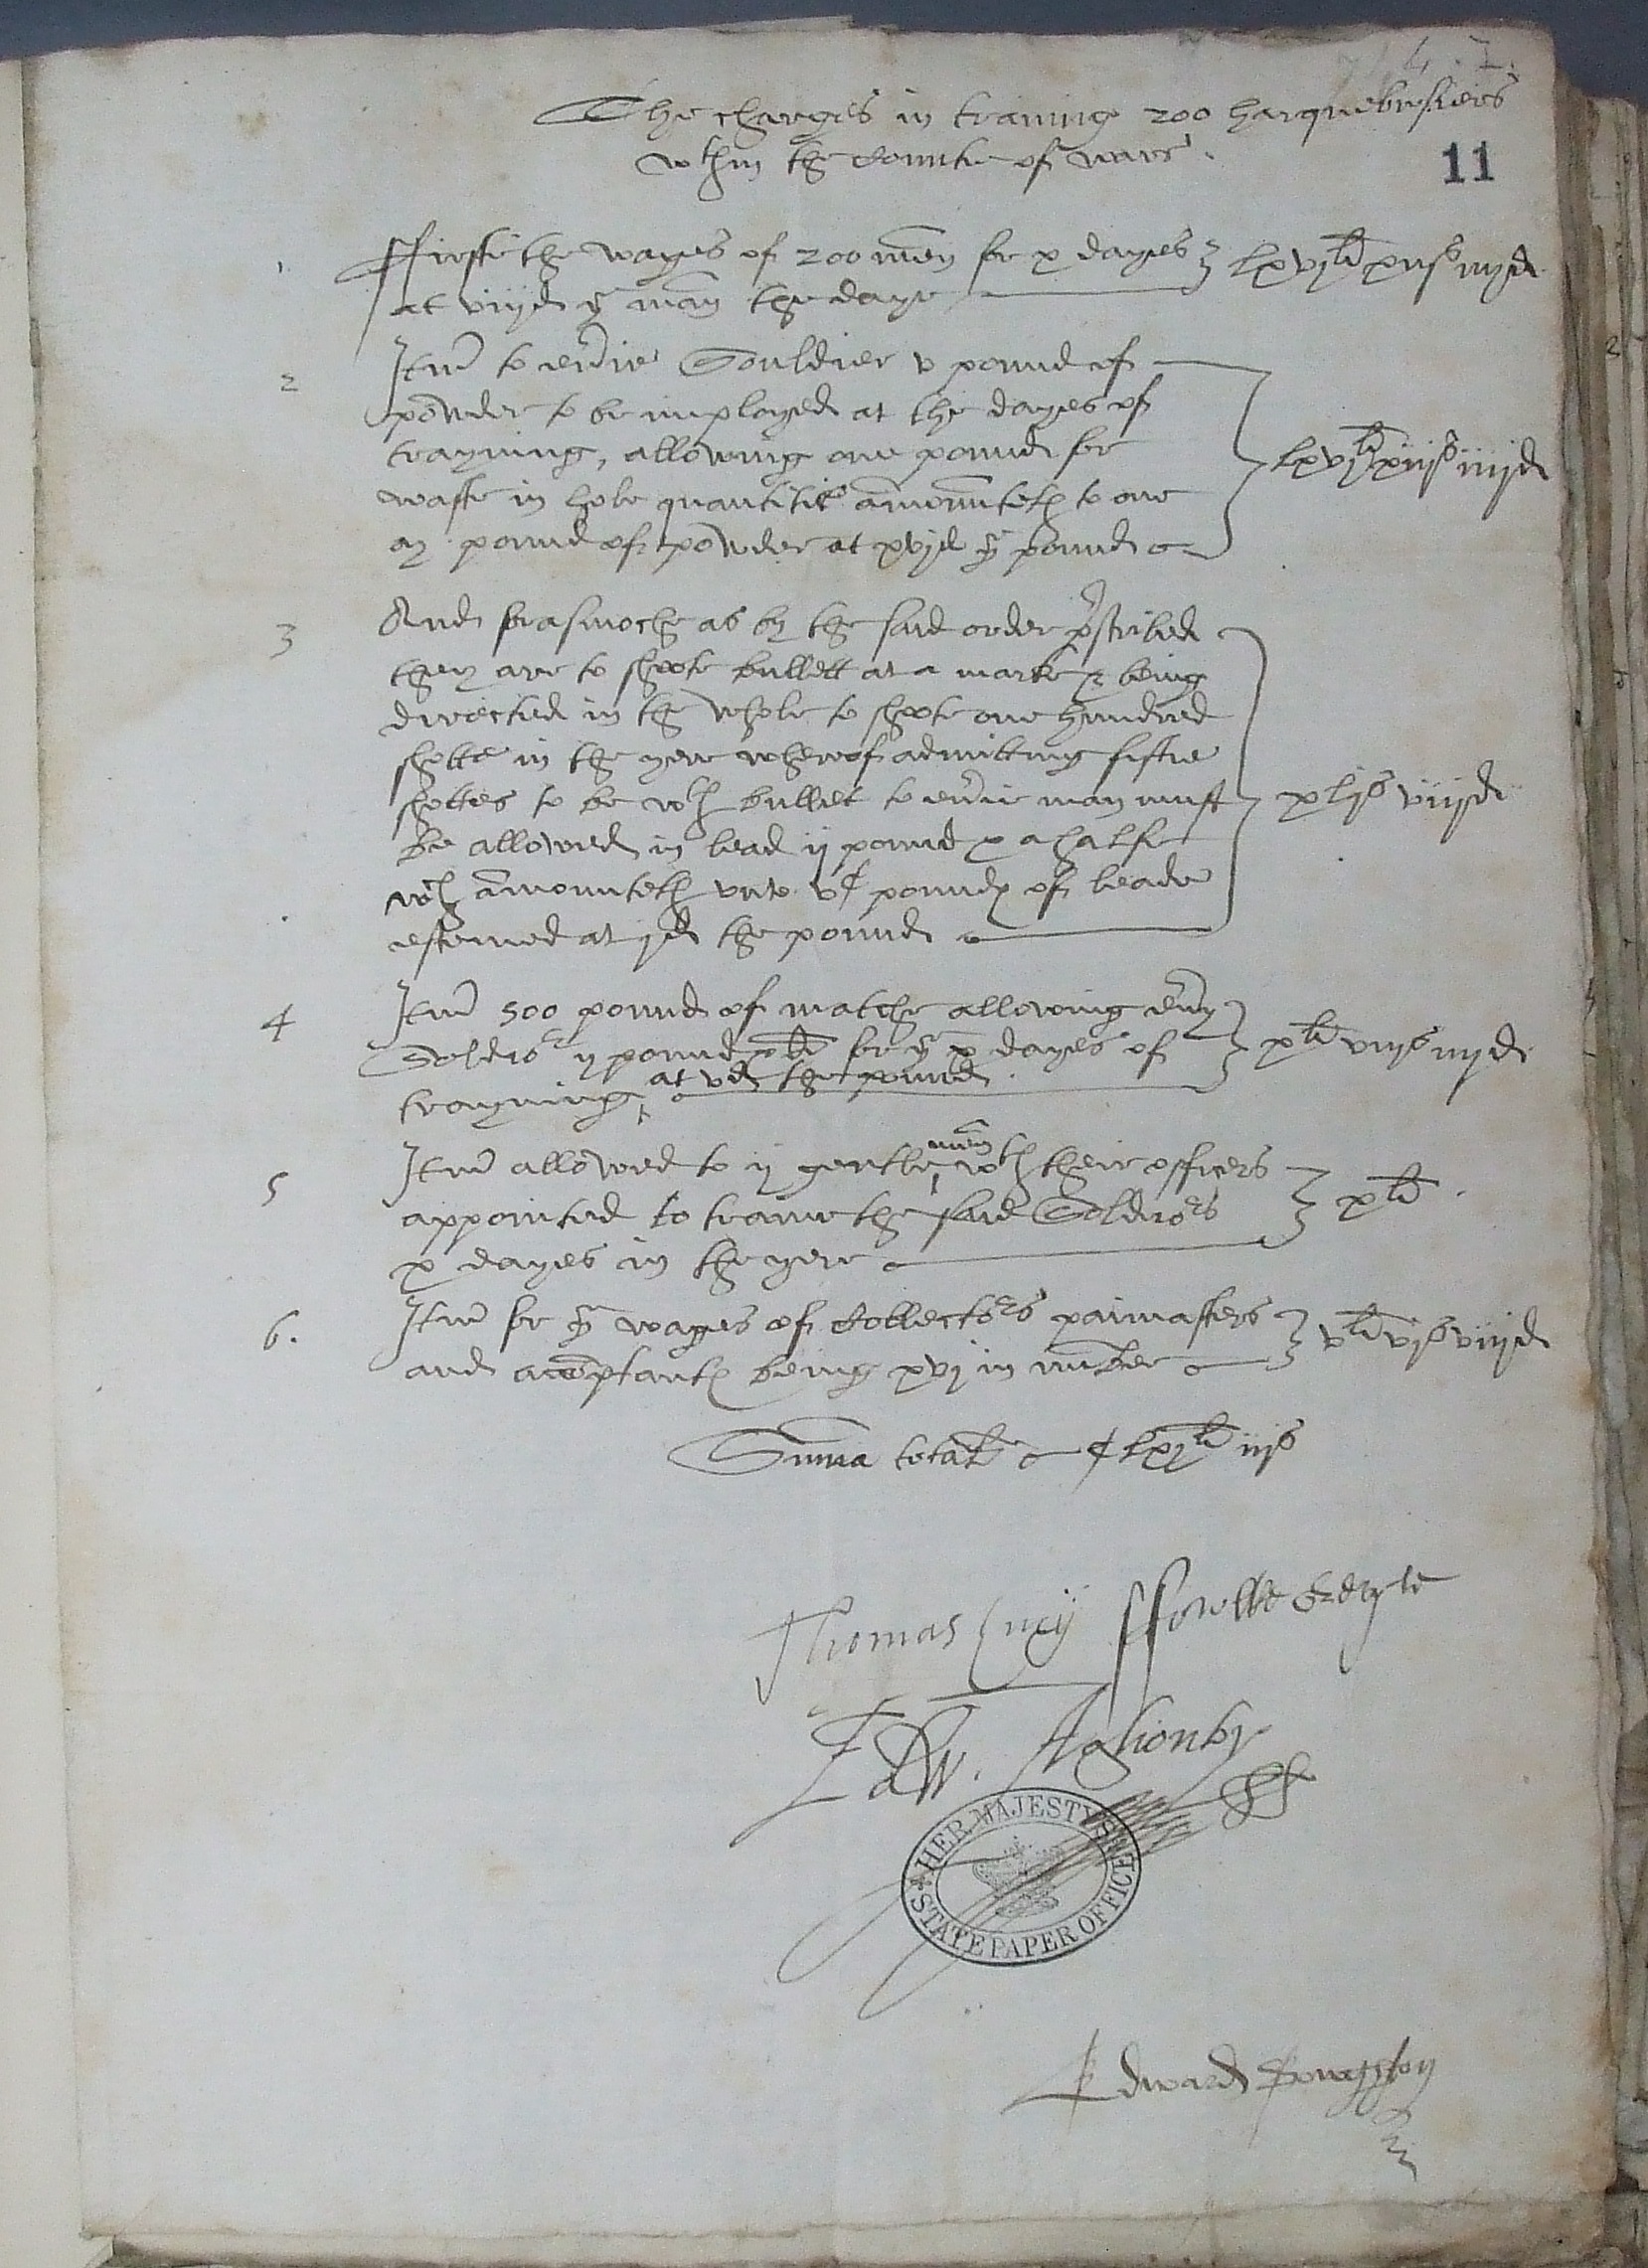 The charges in traininge 200 harquebusiers
wthin the Countie of warr
11
1 Ffirste the wages of 200 men for x dayes
at viijd ye man the daye
lxvjli xiijs iiijd
2 Itm to eu'ie Souldier v pound of
powder to be imployed at the dayes of
trayning, allowing one pound for
waste in hole quantitie amounteth to one
m pound of powder at xvjd ye pound
lxvjli xiijs iiijd
3 And forasmoche as by the said order p'scribed
they are to shoote bullett at a marke & being
directed in the whole to shoote one hundred
shotte in the yere wherof admitting fiftie
shottes to be wth bullet to eu'ie man must
be allowed in lead ij pound & a halfe
wch amounteth vnto vC pound of leade
estemed at jd the pound
xljs viijd
4 Itm 500 pound of matche allowing eu'y
Soldior ij pound di for ye x dayes of
trayning at vd the pound
xli viijs iiijd
5 Itm allowed to ij gentlemen wth their officers
appointed to traine the said Soldiors
x dayes in the yere
xli
6. Itm for ye wages of Collectors paimasters
and accomptants being xvj in number
vli vjs viijd
Summa total Clxjli iijs
Thomas Lucy
Edw. Aglionby
HER MAJESTY'S
STATE PAPER OFFICE
Edward Boughton